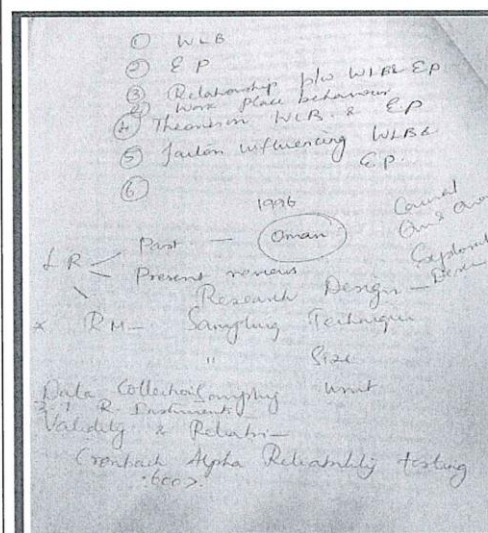 ① WLB
② EP
③ Relationship b/w WLB & EP
② Work place behaviour
④ Theories on WLB & EP
⑤ Factors influencing WLB &
EP.
⑥
1996
LR Past — Oman
Present reviews
Research Design —
* RM — Sampling Technique
" Size
Data Collection Sampling unit
R. Instruments
Validity & Reliabi—
Cronbach Alpha Reliability testing